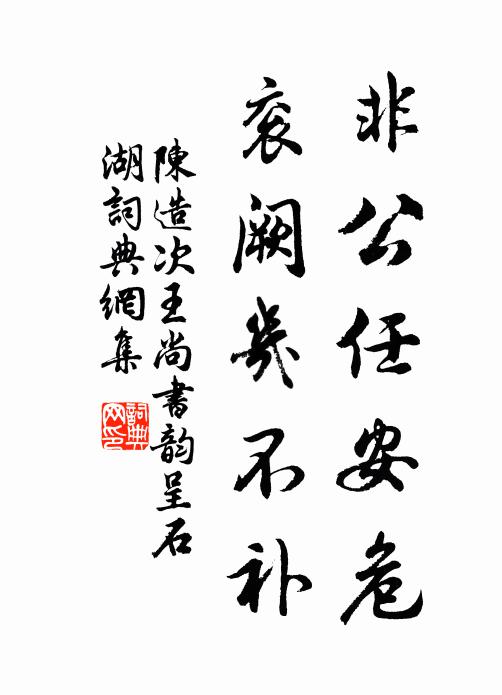 非公任安危
衮阙几不补
陳造次王尚書韵呈石
湖詞典網集
詞典
网印